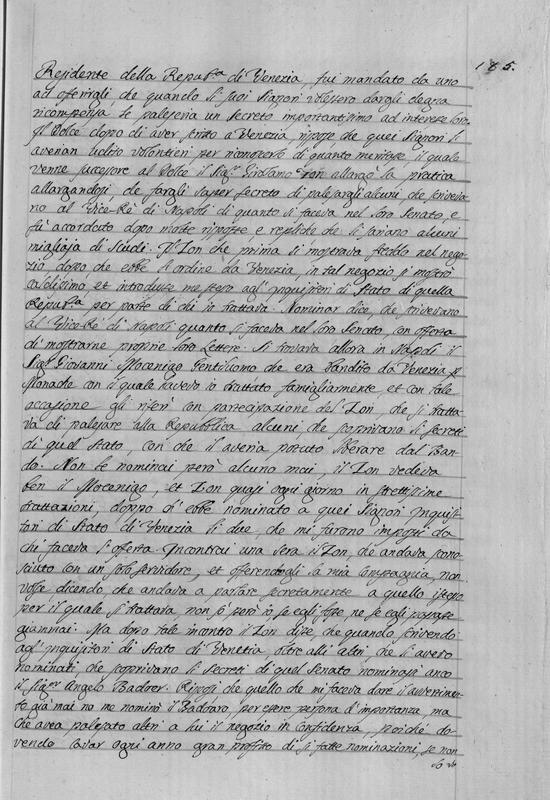 185.
Residente della Repub.ca di Venezia, fui mandato da uno
ad offerirgli, che quando li suoi Signori volessero dargli degna
ricompensa, le palesaria un secreto importantissimo ad interesse loro.
Il Dolce dopo di aver scritto a Venezia, rispose che quei Signori li
averian udito volontieri per riconoscerlo di quanto meritasse, il quale
venne successore al Dolce il Sig.r Girolamo Zon allargò la pratica
allargandosi de fargli saper secreto di palesargli alcuni che scriveva
no al Vice-Rè di Napoli di quanto si faceva nel loro Senato, e
fù accordato dopo molte risposte e repliche che si sariano alcuni
migliaja di Scudi. Il Zon che prima si mostrava freddo nel nego-
zio dopo che ebbe l'ordine da Venezia, in tal negozio si mostrò
caldissimo, et introdusse me stesso agl'Inquisitori di Stato di quella
Repub.ca per parte di chi io trattava. Nominar dice, che scrivevano
al Vice-Rè di Napoli quanto si faceva nel loro Senato, con offerta
di mostrarne proprie loro Lettere. Si trovava allora in Napoli il
Sig.r Giovanni Mocenigo Gentiluomo che era bandito da Venezia p
Monache con il quale havevo io trattato famigliarmente, et con tale
occasione gli riferì con partecipazione del Zon, che si tratta-
va di palesare alla Repubblica alcuni, che scrivevano li secreti
di quel Stato, con che il averia potuto liberare dal Ban-
do. Non le nominai però alcuno mai, il Zon vedeva
ben il Mocenigo, et Zon quasi ogni giorno in strettissime
trattazioni, doppo d'ebbe nominato a quei Signori Inquisi-
tori di Stato di Venezia li due, che mi furono imposti da
chi faceva l'offerta. Incontrai una sera il Zon, che andava cono-
sciuto con un sol servidore, et offerendogli la mia Compagnia, non
volse dicendo, che andava a parlare secretamente a quello istesso
per il quale si trattava non sò però io se egli fosse, ne se egli parlasse
giammai. Ma dopo tale incontro il Zon disse, che quando scrivendo
agl'Inquisitori di Stato di Venetia oltre alli altri, che li avevo
nominati, che scrivevano li secreti di quel Senato nominassi anco
il Sig.r Angelo Badoer. Risposi che quello che mi faceva dare l'avvertimen-
to già mai no me nominò il Badoaro, per essere persona d'importanza, ma
che avea palesato altri a lui il negozio in confidenza, poichè do-
vendo cavar ogni anno gran profitto di si fatte nominazioni, se non